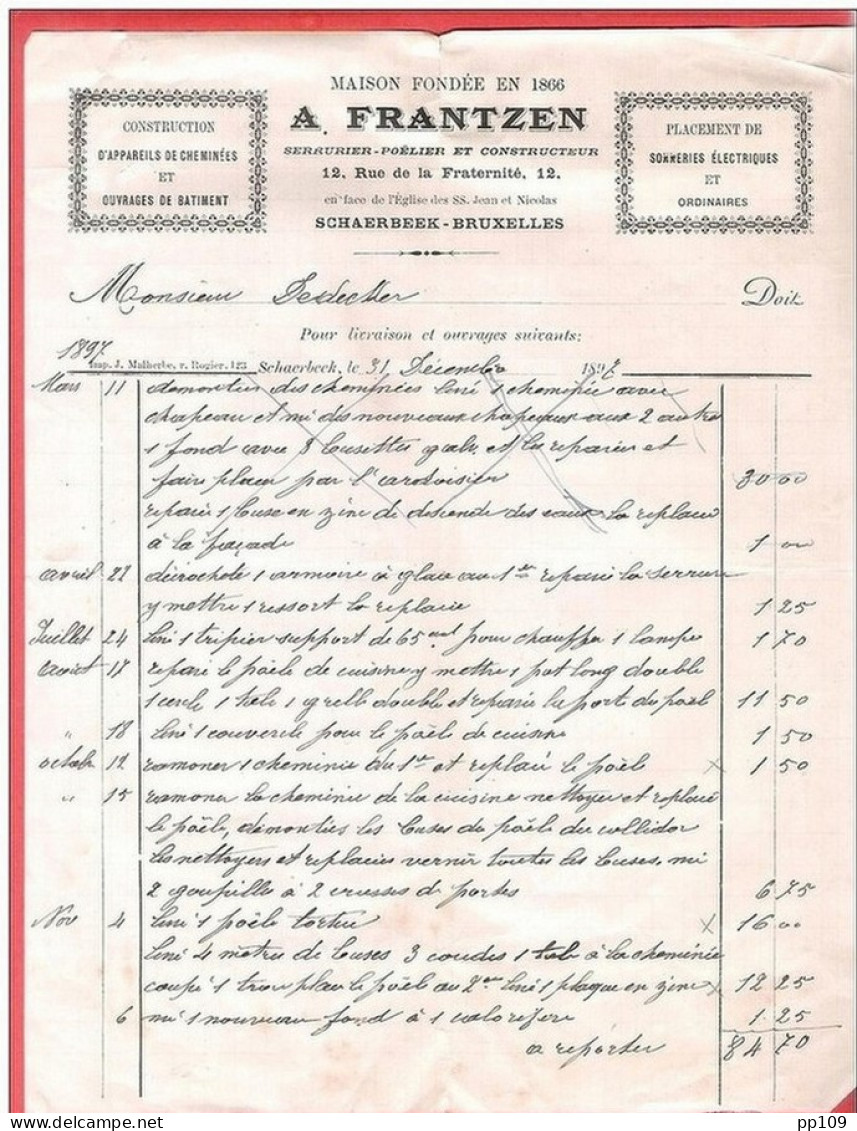 MAISON FONDÉE EN 1866
A. FRANTZEN
SERRURIER-POËLIER ET CONSTRUCTEUR
12, Rue de la Fraternité, 12.
en face de l'Église des SS. Jean et Nicolas
SCHAERBEEK-BRUXELLES
CONSTRUCTION
D'APPAREILS DE CHEMINÉES
ET
OUVRAGES DE BATIMENT
PLACEMENT DE
SONNERIES ÉLECTRIQUES
ET
ORDINAIRES
Monsieur Dedecker Doit
Pour livraison et ouvrages suivants:
1897
Imp. J. Malherbe, r. Rogier, 123 Schaerbeek, le 31 Décembre 1897
Mars 11 demonter des cheminées livré 1 cheminée avec
chapeau et mi des nouveaux chapeaux aux 2 autre
1 fond avec 8 busettes galv. et les reparer et
faire placer par l'ardoisier 30 00
reparé 1 buse en zinc de descende des eaux la replacé
à la façade 1 00
avril 22 décrocheté 1 armoire à glace au 1er reparé la serrure
y mettre 1 ressort la replacé 1 25
Juillet 24 livré 1 tripier support de 65 pour chauffer 1 lampe 1 70
août 17 reparé le poële de cuisine y mettre 1 pot long double
1 cercle 1 tole 1 grille double et reparé la porte du poële 11 50
" 18 livré 1 couvercle pour le poële de cuisine 1 50
octobr 12 ramoner 1 cheminée du 1er et replacé le poële x 1 50
" 15 ramoner la cheminée de la cuisine nettoyer et replacé
le poële, démonties les buses du poële du collidor
les nettoyers et replacies vernir toutes les buses, mi
2 goupilles à 2 crusses de portes 6 75
Nov 4 livré 1 poële tortue x 16 00
livré 4 mètres de buses 3 coudes 1 tole à la cheminée
coupé 1 trou placé le poële au 2me livré 1 plaque en zinc x 12 25
6 mi 1 nouveau fond à 1 calorifere 1 25
a reporter 84 70
pp109